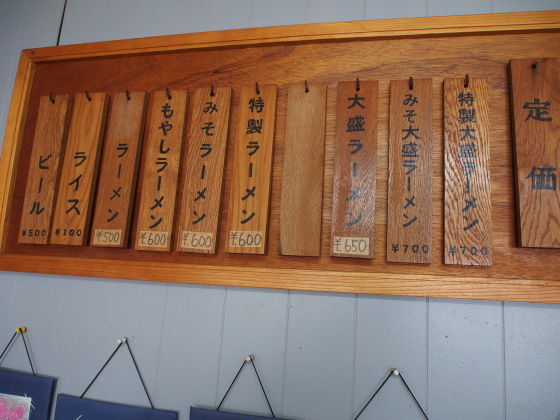 定価
特製大盛ラーメン
¥700
みそ大盛ラーメン
¥700
大盛ラーメン
¥650
特製ラーメン
¥600
みそラーメン
¥600
もやしラーメン
¥600
ラーメン
¥500
ライス
¥100
ビール
¥500